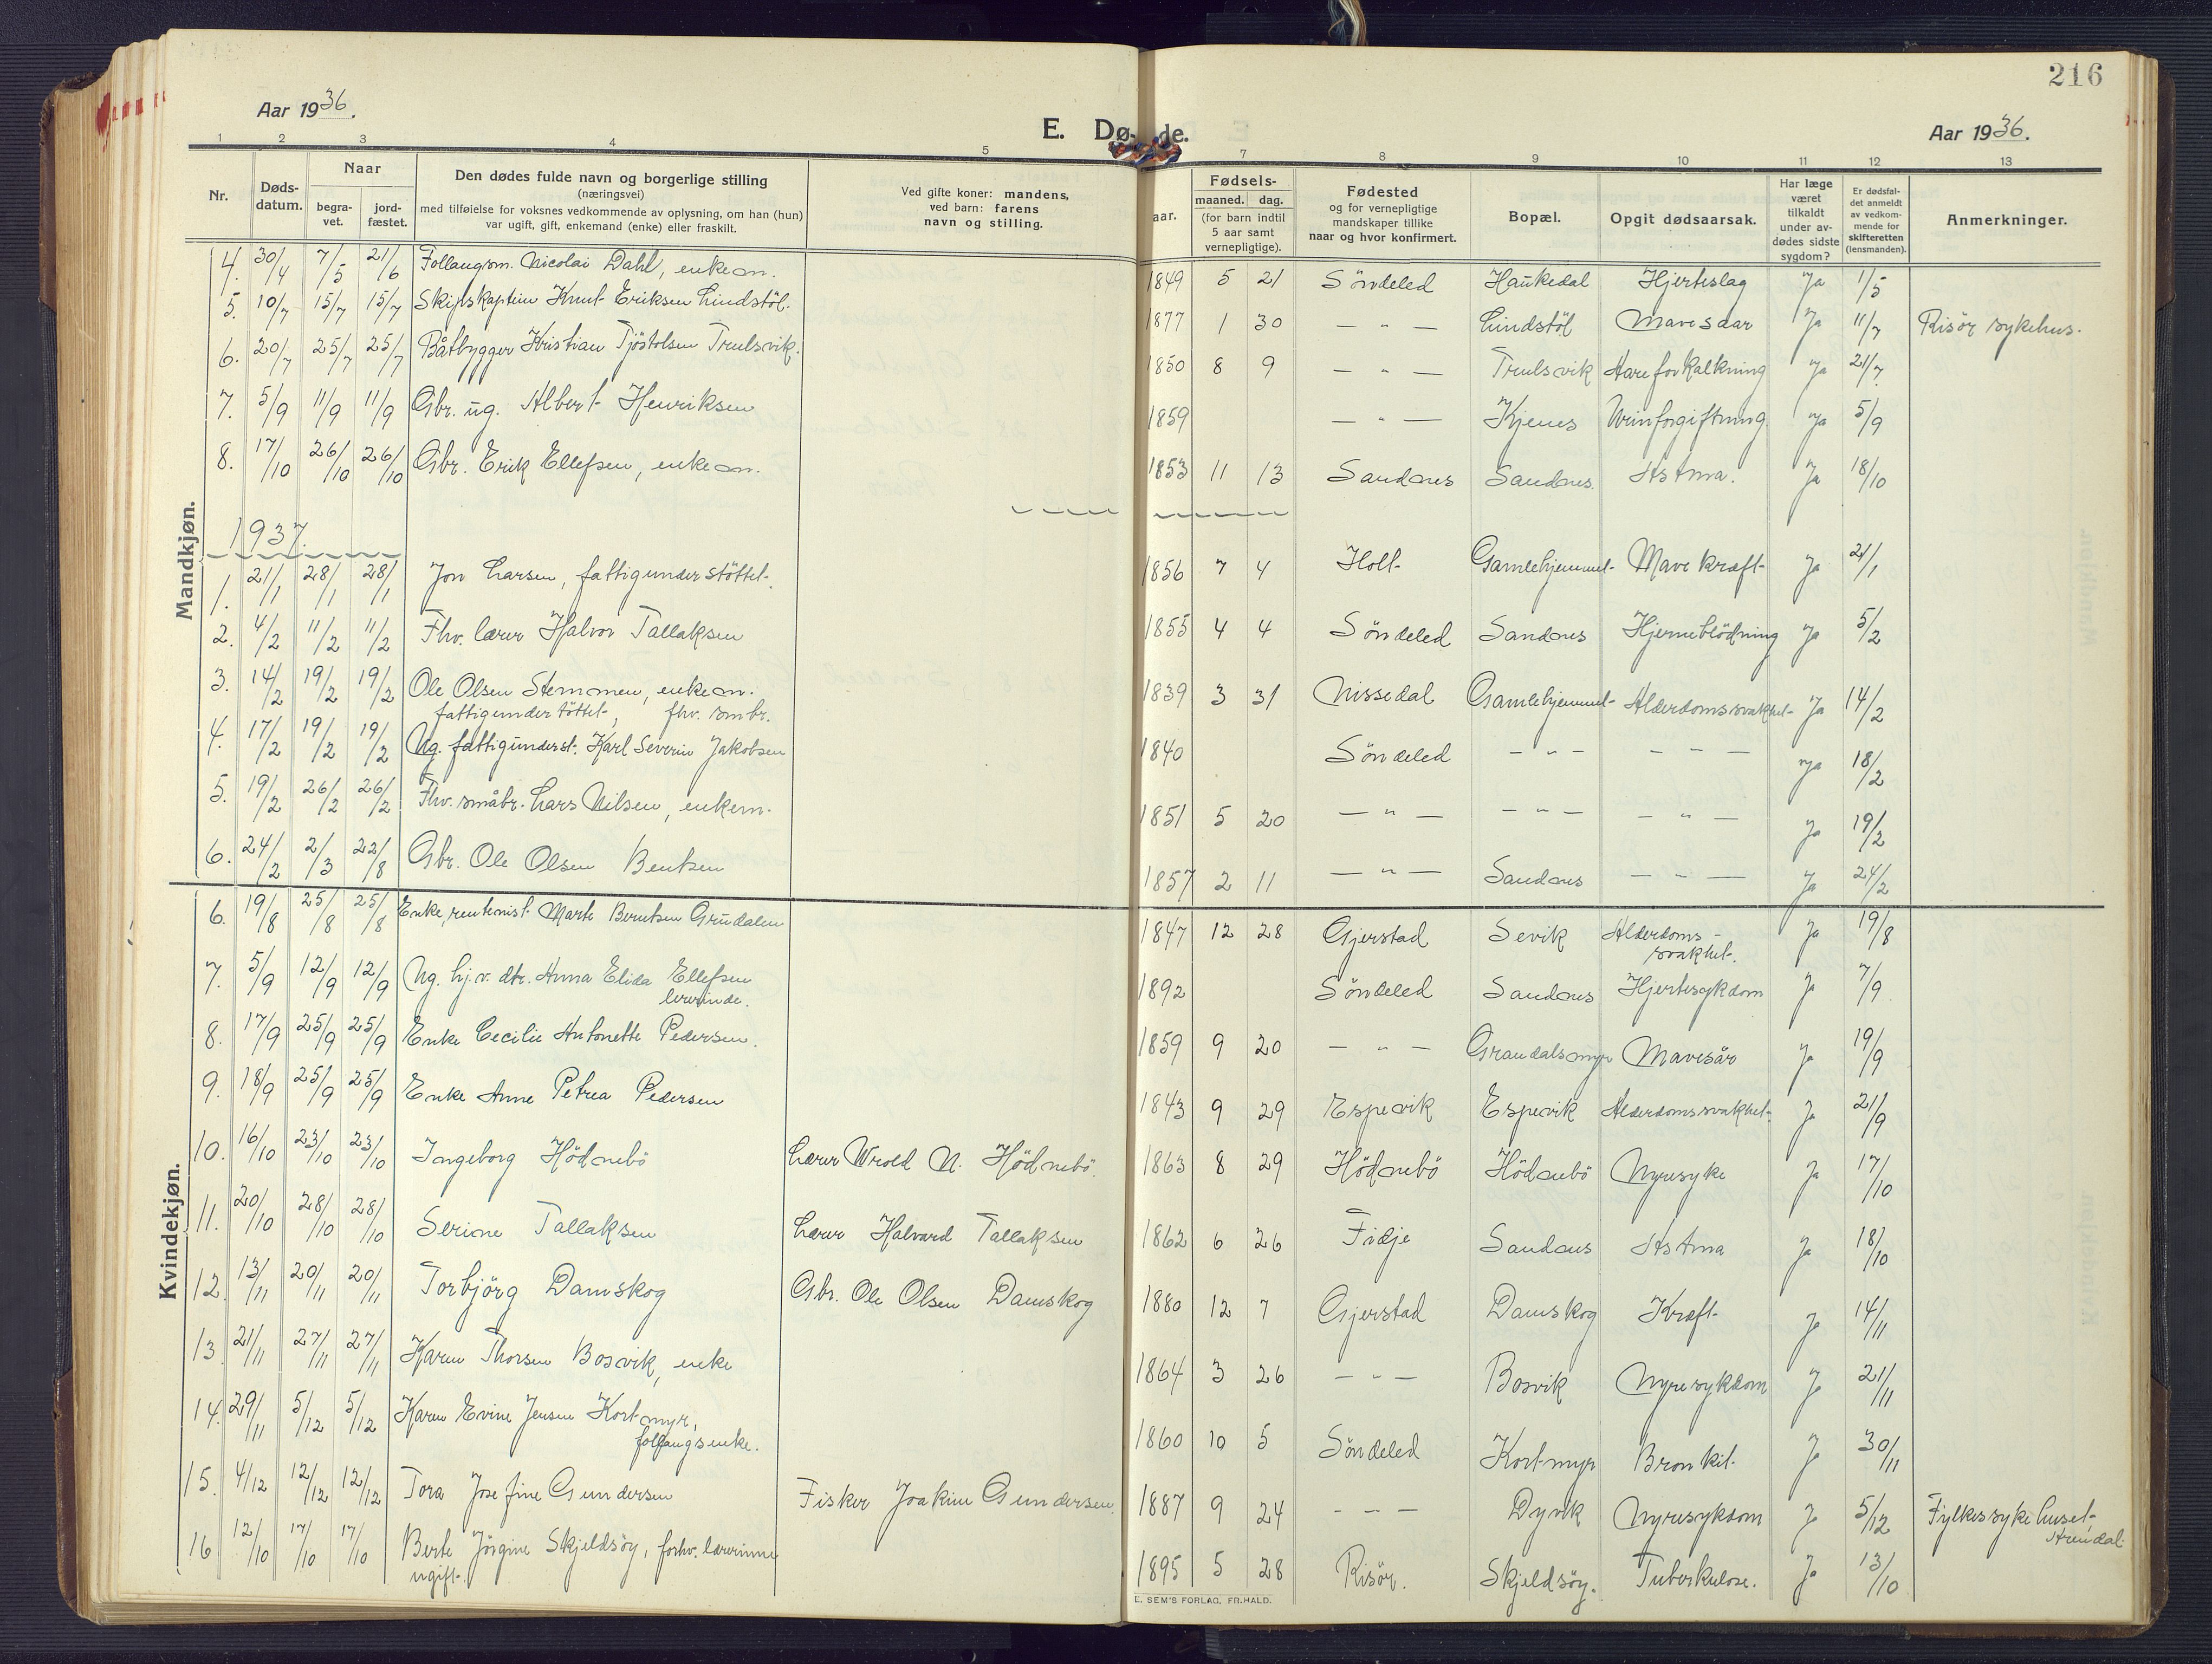 216
Aar 1936.
E. Dø- de.
Aar 1936.
1 2 3 4 5 7 8 9 10 11 12 13
Nr.
Døds-
datum.
Naar
begra-
vet.
jord-
fæstet.
Den dødes fulde navn og borgerlige stilling
(næringsvei)
med tilføielse for voksnes vedkommende av oplysning, om han (hun)
var ugift, gift, enkemand (enke) eller fraskilt.
Ved gifte koner: mandens,
ved barn: farens
navn og stilling.
aar.
Fødsels-
maaned. dag.
(for barn indtil
5 aar samt
vernepligtige).
Fødested
og for vernepligtige
mandskaper tillike
naar og hvor konfirmert.
Bopæl.
Opgit dødsaarsak.
Har læge
været
tilkaldt
under av-
dødes sidste
sygdom?
Er dødsfal-
det anmeldt
av vedkom-
mende for
skifteretten
(lensmanden).
Anmerkninger.
Mandkjøn.
4. 30/4 7/5 21/6 Follaugsm. Nicolai Dahl, enkem. 1849 5 21 Söndeled Haukedal Hjerteslag Ja 1/5
5. 10/7 15/7 15/7 Skipskaptein Knut Eriksen Lindstöl. 1877 1 30 — " — Lindstöl Mavesaar Ja 11/7 Risör sykehus.
6. 20/7 25/7 25/7 Båtbygger Kristian Tjöstolsen Trulsvik. 1850 8 9 — " — Trulsvik Areforkalkning Ja 21/7
7. 5/9 11/9 11/9 Gbr. ug. Albert Henriksen 1859 — " — Kjenes Urinforgiftning Ja 5/9
8. 17/10 26/10 26/10 Gbr. Erik Ellefsen, enkem. 1853 11 13 Sandnes Sandnes. Astma. Ja 18/10
1937.
1. 21/1 28/1 28/1 Jon Larsen, fattigunderstöttet. 1856 7 4 Holt Gamlehjemmet Mavekræft Ja 21/1
2. 4/2 11/2 11/2 Fhv. lærer Halvor Tallaksen 1855 4 4 Söndeled Sandnes Hjerneblödning Ja 5/2
3. 14/2 19/2 19/2 Ole Olsen Stemmen, enkem. 1839 3 31 Nissedal Gamlehjemmet Alderdomssvakhet Ja 14/2
fattigundertöttet, fhv. smbr.
4. 17/2 19/2 19/2 Ug. fattigunderst. Karl Severin Jakobsen 1840 Söndeled — " — — " — Ja 18/2
5. 19/2 26/2 26/2 Fhv. småbr. Lars Nilsen, enkem. 1851 5 20 — " — — " — — " — Ja 19/2
6. 24/2 2/3 22/8 Gbr. Ole Olsen Bentsen 1857 2 11 — " — Sandnes — " — Ja 24/2
Kvindekjøn.
6. 19/8 25/8 25/8 Enke, rentenist Marte Berntsen Grindalen 1847 12 28 Gjerstad Sevik Alderdoms-
svakhet. Ja 19/8
7. 5/9 12/9 12/9 Ug. hj.v. dtr. Anna Elida Ellefsen 1892 Söndeled Sandnes Hjertesykdom J 7/9
lererinde.
8. 17/9 25/9 25/9 Enke Cecilie Antonette Pedersen. 1859 9 20 — " — Grandalsmyr Mavesår J 19/9
9. 18/9 25/9 25/9 Enke Anne Petrea Pedersen 1843 9 29 Espevik Espevik Alderdomssvakhet. J 21/9
10. 16/10 23/10 23/10 Ingeborg Hödnebö Lærer Wrold N. Hödnebö. 1863 8 29 Hödnebö Hödnebö Nyresyke J 17/10
11. 20/10 28/10 28/10 Serine Tallaksen Lærer Halvard Tallaksen 1862 6 26 Fidje Sandnes Astma J 18/10
12. 13/11 20/11 20/11 Torbjörg Damskog Gbr. Ole Olsen Damskog 1880 12 7 Gjerstad Damskog Kræft J 14/11
13. 21/11 27/11 27/11 Karen Thorsen Bosvik, enke 1864 3 26 — " — Bosvik Nyresykdom J 21/11
14. 29/11 5/12 5/12 Karen Evine Jensen Kortmyr, 1860 10 5 Söndeled Kortmyr Bronkit J 30/11
folgaugsenke.
15. 4/12 12/12 12/12 Tora Josefine Gundersen Fisker Joakim Gundersen. 1887 9 24 — " — Dyvik Nyresykdom J 5/12 Fylkessykehuset
Arendal.
16 12/10 17/10 17/10 Berte Jörgine Skjeldsöy, forhv. lærerinne 1895 5 28 Risör. Skjeldsöy. Tuberkulose. J 13/10
ugift.
E. SEM'S FORLAG, FR.HALD.